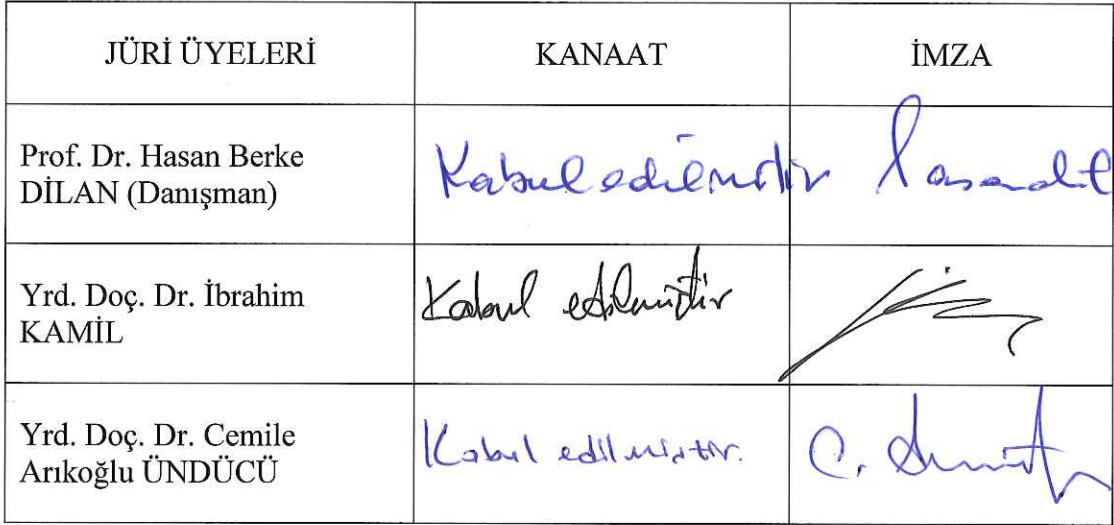 JÜRİ ÜYELERİ KANAAT İMZA
Prof. Dr. Hasan Berke
DİLAN (Danışman)
Kabul edilmiştir
Yrd. Doç. Dr. İbrahim
KAMİL
Kabul edilmiştir
Yrd. Doç. Dr. Cemile
Arıkoğlu ÜNDÜCÜ
Kabul edilmiştir.